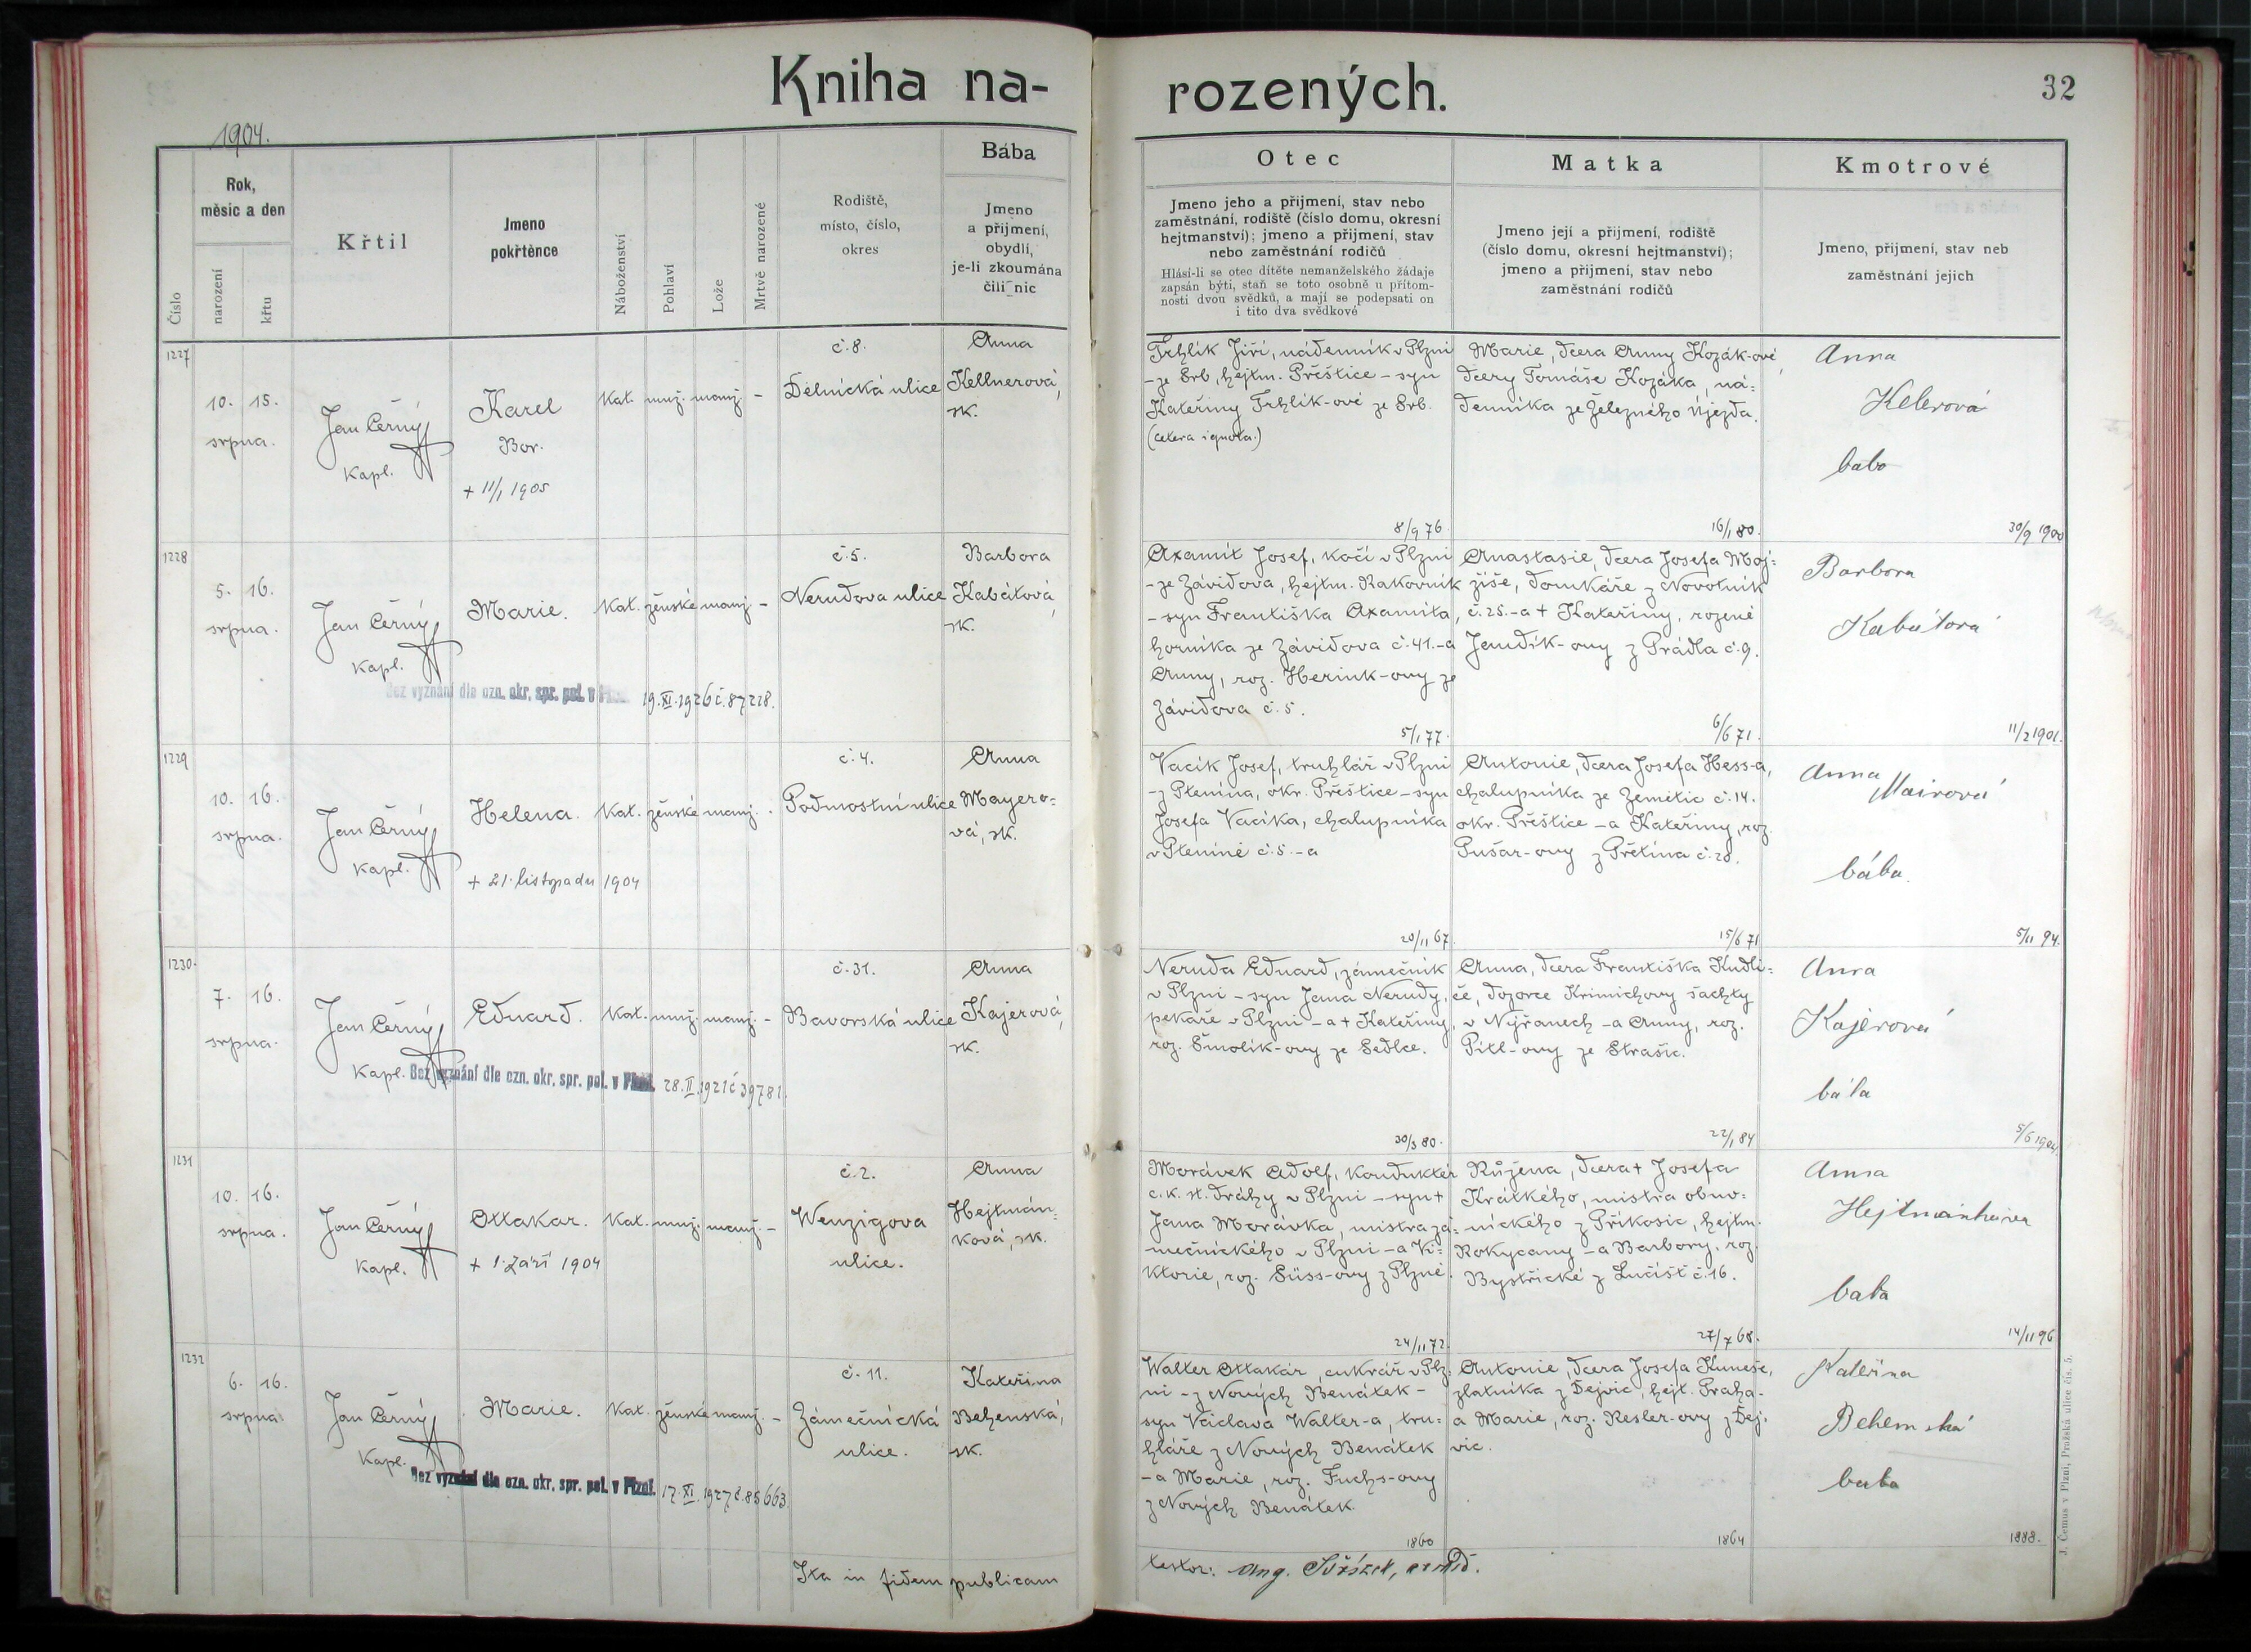 Kniha na-
rozených.
32
1904.
Číslo
Rok,
měsíc a den
narození
křtu
Křtil
Jmeno
pokřtěnce
Náboženství
Pohlaví
Lože
Mrtvě narozené
Rodiště,
místo, číslo,
okres
Bába
Jmeno
a přijmení,
obydlí,
je-li zkoumána
čili nic
Otec
Jmeno jeho a přijmení, stav nebo
zaměstnání, rodiště (číslo domu, okresní
hejtmanství); jmeno a přijmení, stav
nebo zaměstnání rodičů
Hlásí-li se otec dítěte nemanželského žádaje
zapsán býti, staň se toto osobně u přítom-
nosti dvou svědků, a mají se podepsati on
i tito dva svědkové
Matka
Jmeno její a přijmení, rodiště
(číslo domu, okresní hejtmanství);
jmeno a přijmení, stav nebo
zaměstnání rodičů
Kmotrové
Jmeno, přijmení, stav neb
zaměstnání jejich
1227
10. 15.
srpna.
Jan Černý
kapl.
Karel
Bor.
+ 11/1 1905
kat. muž. manž. -
č. 8.
Dělnická ulice
Anna
Kellnerová,
zk.
Trhlík Jiří, nádenník v Plzni
- ze Srb, hejtm. Přeštice - syn
Kateřiny Trhlík-ové ze Srb.
(cetera ignota.)
8/9 76.
Marie, dcera Anny Kozák-ové,
dcery Tomáše Kozáka, ná=
denníka ze Železného Újezda.
16/1 80.
Anna
Kelerová
baba
30/9 1900
1228
5. 16.
srpna.
Jan Černý
kapl.
Marie.
kat. ženské manž. -
Bez vyznání dle ozn. okr. spr. pol. v Plzni. 19.XI.1926 č.87228.
č. 5.
Nerudova ulice
Barbora
Kabátová,
zk.
Axamit Josef, kočí v Plzni
- ze Závidova, hejtm. Rakovník
- syn Františka Axamita,
horníka ze Závidova č. 41. - a
Anny, roz. Herink-ovy ze
Závidova č. 5.
5/1 77.
Anastasie, dcera Josefa Moj=
žíše, domkáře z Novotník
č. 25. - a + Kateřiny, rozené
Jendík-ovy z Prádla č. 9.
6/6 71.
Barbora
Kabátová
11/2 1901.
1229
10. 16.
srpna.
Jan Černý
kapl.
Helena.
+ 21. listopadu 1904
kat. ženské manž. .
č. 4.
Podmostní ulice
Anna
Mayero=
vá, zk.
Vacík Josef, truhlář v Plzni
- z Ptenína, okr. Přeštice - syn
Josefa Vacíka, chalupníka
v Pteníně č. 5. - a
20/11 67.
Antonie, dcera Josefa Hess-a,
chalupníka ze Zemětic č. 14.
okr. Přeštice - a Kateřiny, roz.
Pušar-ovy z Přetína č. 20.
15/6 71
Anna
Mairová
bába.
5/11 94.
1230.
7. 16.
srpna.
Jan Černý
kapl.
Eduard.
kat. muž. manž. -
Bez vyznání dle ozn. okr. spr. pol. v Plzni. 28.II.1921 č 39781.
č. 31.
Bavorská ulice
Anna
Kajerová,
zk.
Neruda Eduard, zámečník
v Plzni - syn Jana Nerudy,
pekaře v Plzni - a + Kateřiny,
roz. Smolík-ovy ze Sedlce.
30/3 80.
Anna, dcera Františka Kudli=
če, dozorce Krimichovy šachty
v Nýřanech - a Anny, roz.
Pitl-ovy ze Strašic.
22/1 84
Anna
Kajerová
bába
5/6 1904
1231
10. 16.
srpna.
Jan Černý
kapl.
Ottakar.
+ 1. září 1904
kat. muž. manž. -
č. 2.
Wenzigova
ulice.
Anna
Hejtmán=
ková, zk.
Morávek Adolf, konduktér
c. k. st. dráhy v Plzni - syn +
Jana Morávka, mistra zá=
mečnického v Plzni - a Vi=
ktorie, roz. Süss-ovy z Plzně.
24/11 72
Růžena, dcera + Josefa
Krátkého, mistra obuv=
nického z Příkosic, hejtm.
Rokycany - a Barbory, roz.
Bystřické z Lučišť č. 16.
27/7 68.
Anna
Hejtmánková
baba
14/11 96
1232
6. 16.
srpna.
Jan Černý
kapl.
Marie.
kat. ženské manž. -
Bez vyznání dle ozn. okr. spr. pol. v Plzni. 17.XI.1927 č. 85663
č. 11.
Zámečnická
ulice.
Kateřina
Behenská,
zk.
Walter Ottakar, cukrář v Plz=
ni - z Nových Benátek -
syn Václava Walter-a, tru=
hláře z Nových Benátek
- a Marie, roz. Fuchs-ovy
z Nových Benátek.
1860
Antonie, dcera Josefa Kuneše,
zlatníka z Dejvic, hejt. Praha -
a Marie, roz. Resler-ovy z Dej=
vic.
1864
Kateřina
Behemská
baba
1888.
Ita in fidem publicam
testor:
J. Čemus v Plzni, Pražská ulice čís. 5.